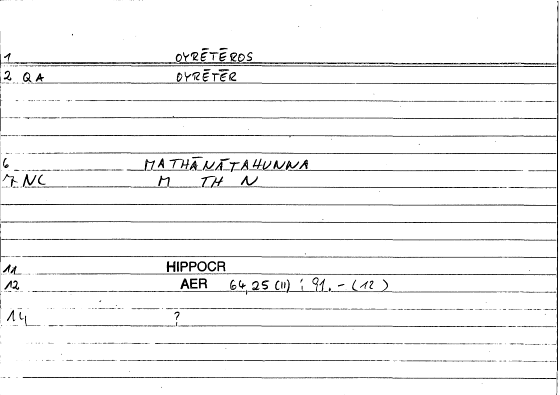 1 OYRĒTĒROS
2 QA OYRĒTĒR
6 MATHĀNĀTAHUNNA
7 NC M TH N
11 HIPPOCR
12 AER 64,25 (11) ; 91.- (12)
14 ?